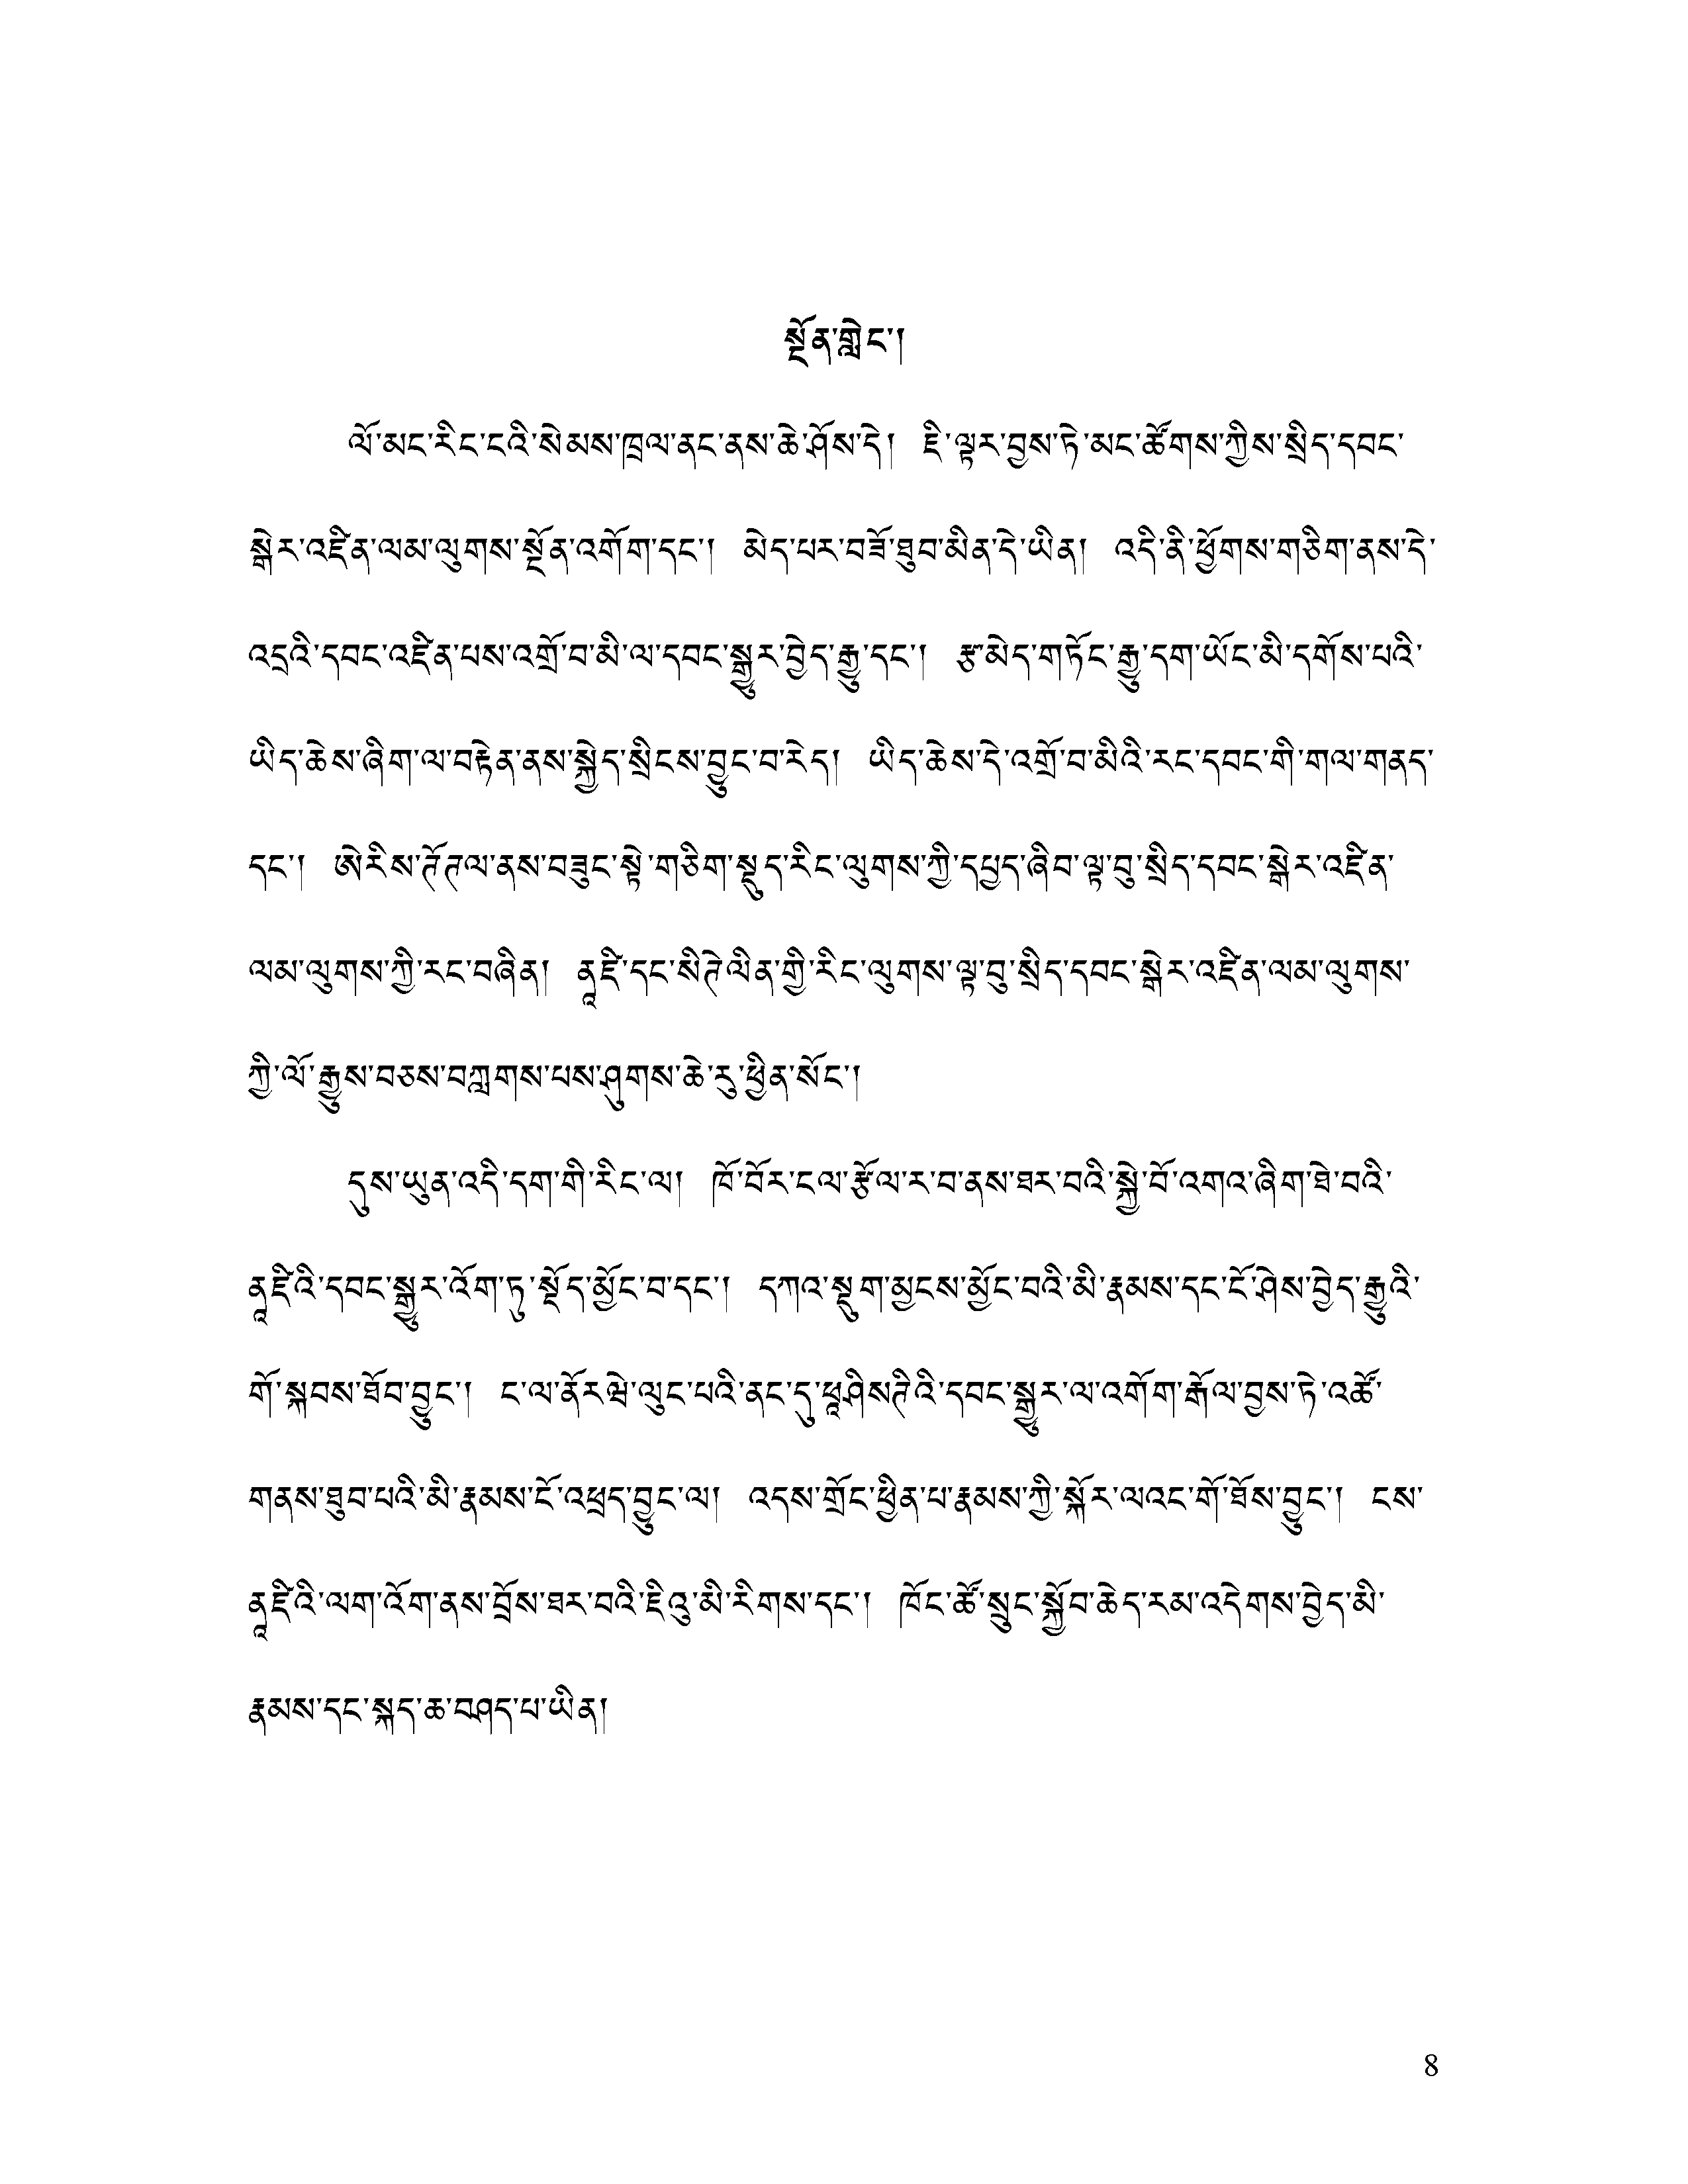 སྔོན་གླེང་།
ལོ་མང་རིང་ངའི་སེམས་ཁྲལ་ནང་ནས་ཆེ་ཤོས་དེ། ཇི་ལྟར་བྱས་ཏེ་མང་ཚོགས་ཀྱིས་སྲིད་དབང་
སྒེར་འཛིན་ལམ་ལུགས་སྔོན་འགོག་དང་། མེད་པར་བཟོ་ཐུབ་མིན་དེ་ཡིན། འདི་ནི་ཕྱོགས་གཅིག་ནས་དེ་
འདྲའི་དབང་འཛིན་པས་འགྲོ་བ་མི་ལ་དབང་སྒྱུར་བྱེད་རྒྱུ་དང་། རྩ་མེད་གཏོང་རྒྱུ་དག་ཡོང་མི་དགོས་པའི་
ཡིད་ཆེས་ཞིག་ལ་བརྟེན་ནས་སྐྱེད་སྲིངས་བྱུང་བ་རེད། ཡིད་ཆེས་དེ་འགྲོ་བ་མིའི་རང་དབང་གི་གལ་གནད་
དང་། ཨེརིས་ཊོཊལ་ནས་བཟུང་སྟེ་གཅིག་སྡུད་རིང་ལུགས་ཀྱི་དཔྱད་ཞིབ་ལྟ་བུ་སྲིད་དབང་སྒེར་འཛིན་
ལམ་ལུགས་ཀྱི་རང་བཞིན། ནཱཛི་དང་སིཊེལིན་གྱི་རིང་ལུགས་ལྟ་བུ་སྲིད་དབང་སྒེར་འཛིན་ལམ་ལུགས་
ཀྱི་ལོ་རྒྱུས་བཅས་བཀླགས་པས་ཤུགས་ཆེ་རུ་ཕྱིན་སོང་།
དུས་ཡུན་འདི་དག་གི་རིང་ལ། ཁོ་བོར་ངལ་རྩོལ་ར་བ་ནས་ཐར་བའི་སྐྱེ་བོ་འགའ་ཞིག་ཐེ་བའི་
ནཱཛིའི་དབང་སྒྱུར་འོག་ཏུ་སྡོད་མྱོང་བ་དང་། དཀའ་སྡུག་མྱངས་མྱོང་བའི་མི་རྣམས་དང་ངོ་ཤེས་བྱེད་རྒྱུའི་
གོ་སྐབས་ཐོབ་བྱུང་། ང་ལ་ནོརཝེ་ལུང་པའི་ནང་དུ་ཕཱཤིསཊིའི་དབང་སྒྱུར་ལ་འགོག་རྒོལ་བྱས་ཏེ་འཚོ་
གནས་ཐུབ་པའི་མི་རྣམས་ངོ་འཕྲད་བྱུང་ལ། འདས་གྲོང་ཕྱིན་པ་རྣམས་ཀྱི་སྐོར་ལའང་གོ་ཐོས་བྱུང་། ངས་
ནཱཛིའི་ལག་འོག་ནས་བྲོས་ཐར་བའི་ཇིའུ་མི་རིགས་དང་། ཁོང་ཚོ་སྲུང་སྐྱོབ་ཆེད་རམ་འདེགས་བྱེད་མི་
རྣམས་དང་སྐད་ཆ་བཤད་པ་ཡིན།
8